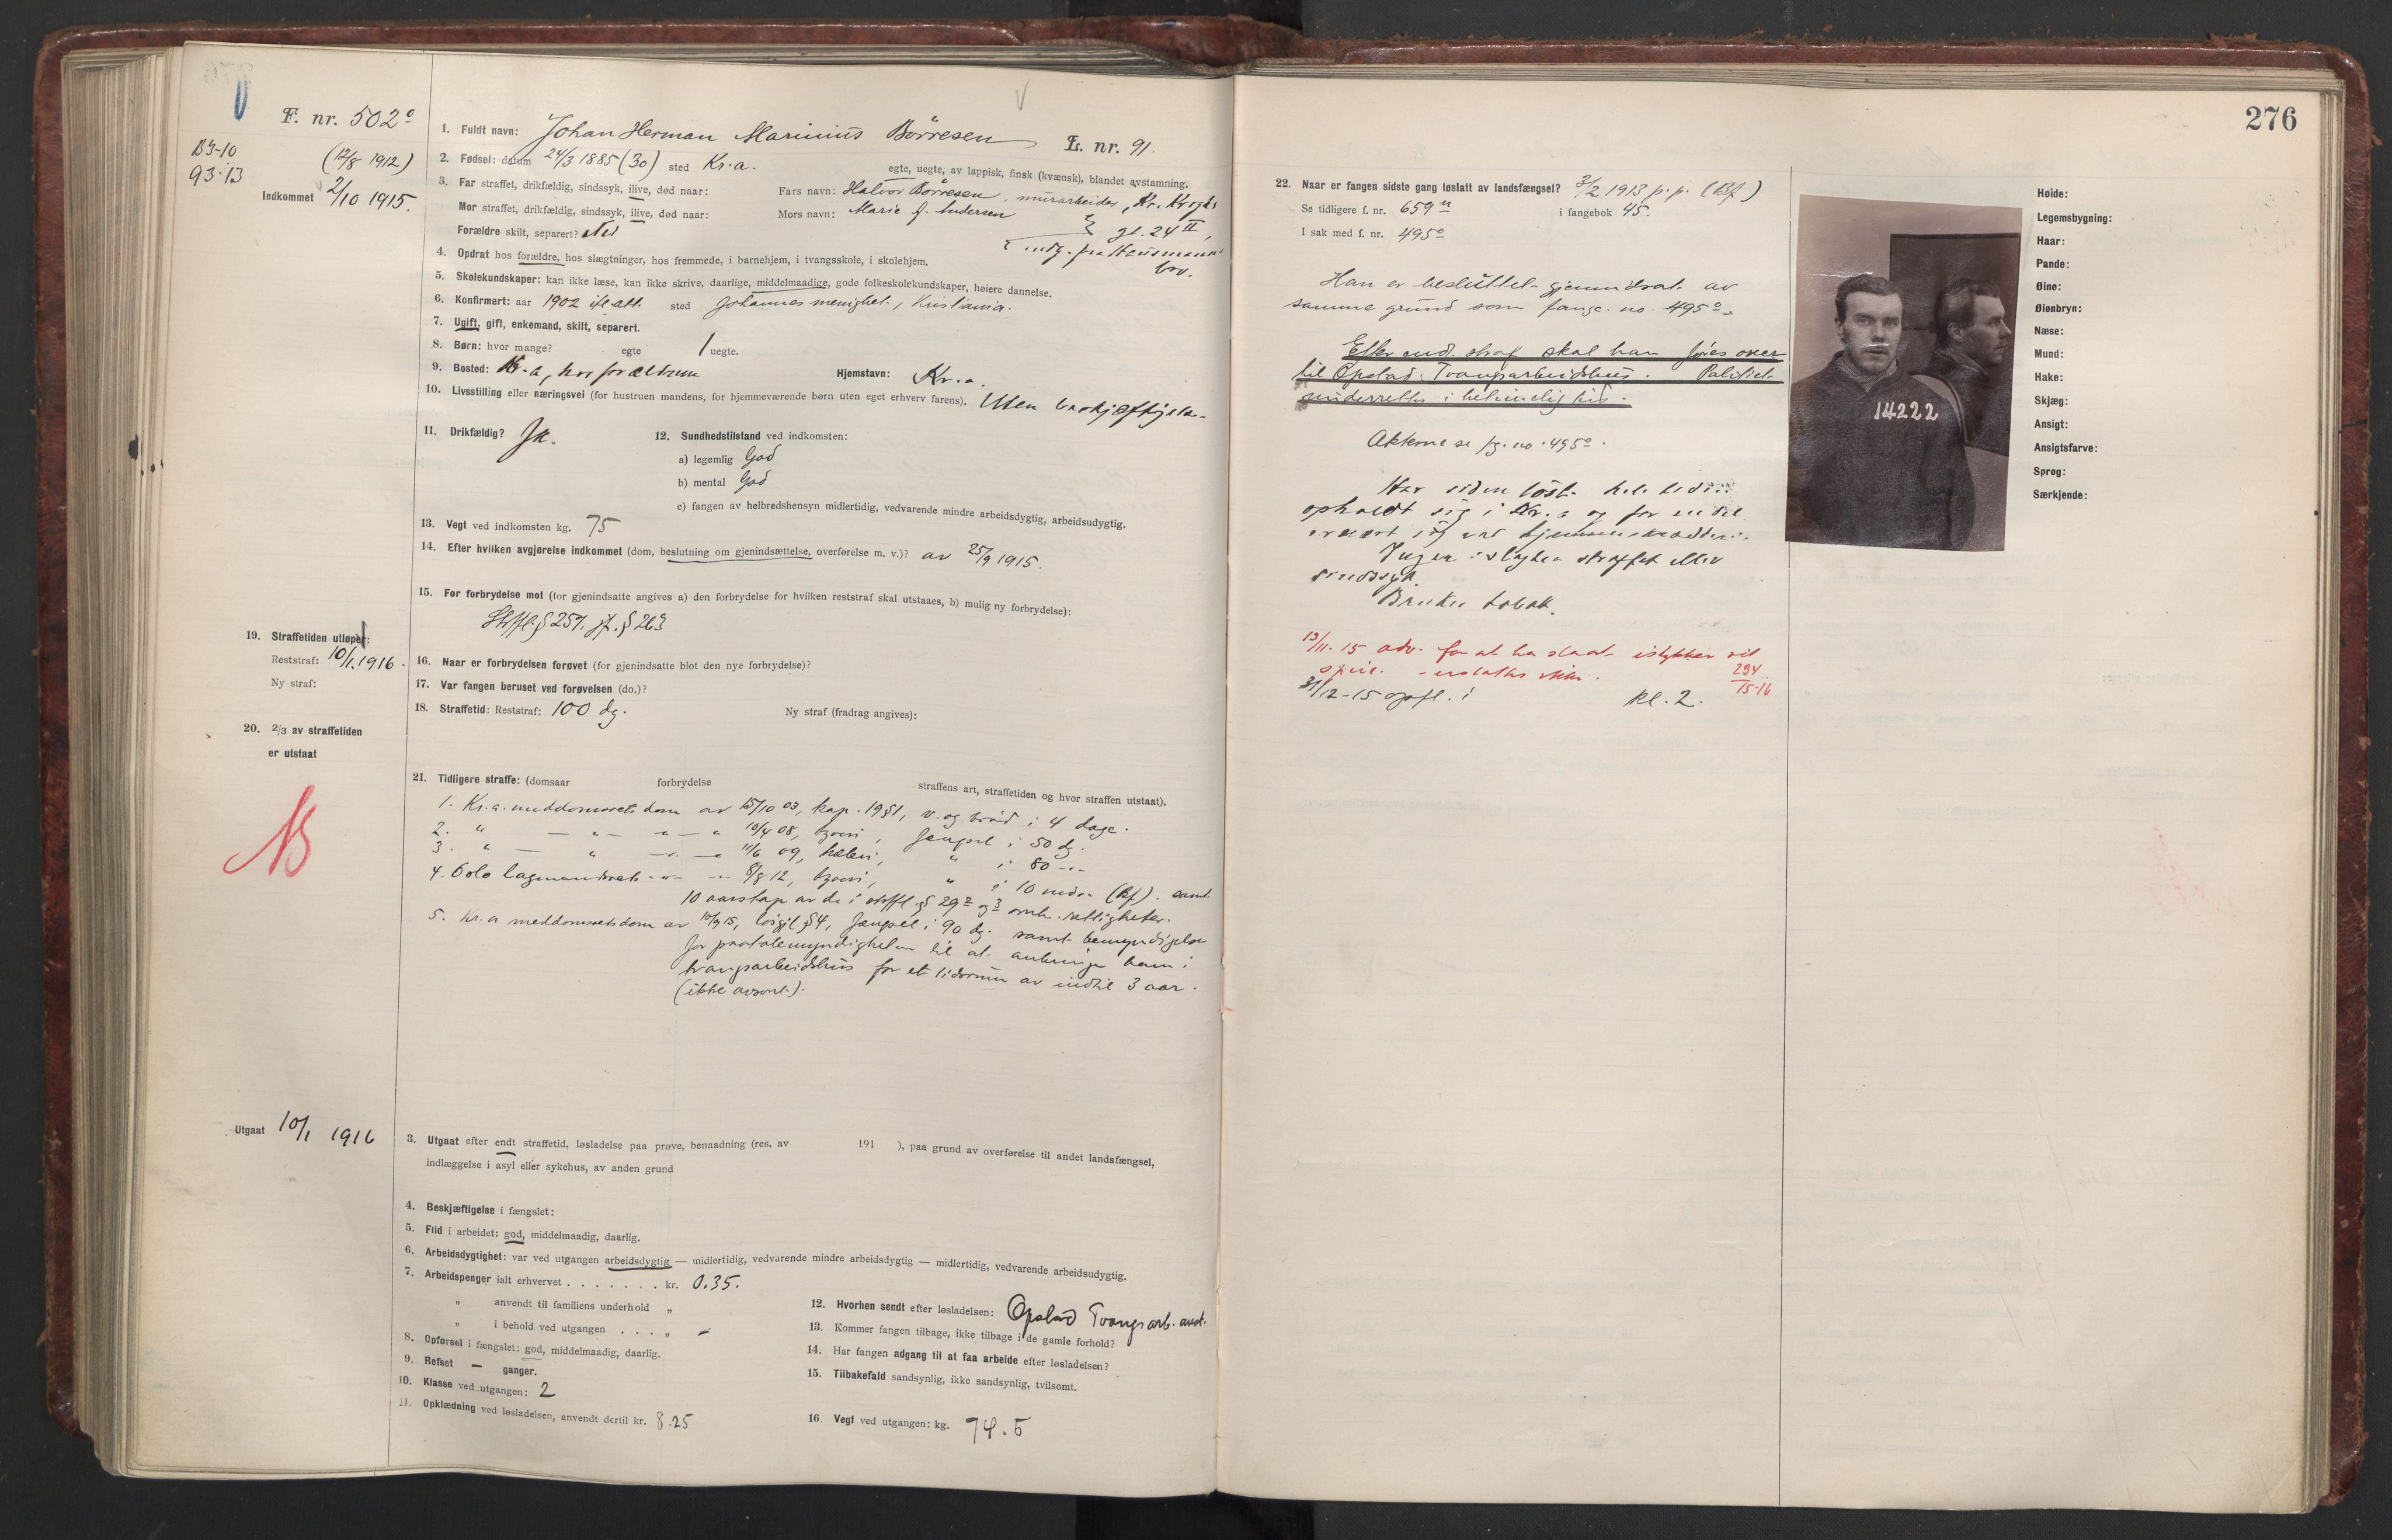 F. nr. 502º
B3-10
93-13
(12/8 1912)
Indkommet 2/10 1915.
1. Fuldt navn: Johan Herman Marinius Börresen
L. nr. 91
2. Fødsel: datum 24/3 1885 (30) sted Kr.a. egte, uegte, av lappisk, finsk (kvænsk), blandet avstamning.
3. Far straffet, drikfældig, sindssyk, ilive, død naar: Fars navn: Halvor Börresen, murarbeider, Kr. Kroghs
Mor straffet, drikfældig, sindssyk, ilive, død naar: Mors navn: Marie f. Andersen gt. 24 II,
Forældre skilt, separert? Nei indg. fra Hausmanns
4. Opdrat hos forældre, hos slægtninger, hos fremmede, i barnehjem, i tvangsskole, i skolehjem. bro.
5. Skolekundskaper: kan ikke læse, kan ikke skrive, daarlige, middelmaadige, gode folkeskolekundskaper, høiere dannelse.
6. Konfirmert: aar 1902 ifl. att. sted Johannes menighet, Kristiania.
7. Ugift, gift, enkemand, skilt, separert.
8. Børn: hvor mange? egte 1 uegte.
9. Bosted: Kr.a, hos forældrene Hjemstavn: Kr.a.
10. Livsstilling eller næringsvei (for hustruen mandens, for hjemmeværende børn uten eget erhverv farens). Uten
11. Drikfældig? Ja. 12. Sundhedstilstand ved indkomsten:
a) legemlig God
b) mental God
c) fangen av helbredshensyn midlertidig, vedvarende mindre arbeidsdygtig, arbeidsudygtig.
13. Vegt ved indkomsten kg. 75
14. Efter hvilken avgjørelse indkommet (dom, beslutning om gjenindsættelse, overførelse m. v.)? av 25/9 1915.
15. For forbrydelse mot (for gjenindsatte angives a) den forbrydelse for hvilken reststraf skal utstaaes, b) mulig ny forbrydelse):
Strfl. § 257. jf. § 263
16. Naar er forbrydelsen forøvet (for gjenindsatte blot den nye forbrydelse)?
17. Var fangen beruset ved forøvelsen (do.)?
18. Straffetid: Reststraf: 100 dg. Ny straf (fradrag angives):
19. Straffetiden utløper:
Reststraf: 10/1. 1916.
Ny straf:
20. 2/3 av straffetiden
er utstaat
21. Tidligere straffe: (domsaar forbrydelse straffens art, straffetiden og hvor straffen utstaat).
1. Kr.a. meddomsrets dom av 15/10 03, kap. 19 § 1, v. og bröd i 4 dage.
2. " — " — " — " 10/4 08, tyveri, fængsel i 50 dg.
3. " — " — " — 11/6 09, hæleri, " i 80 - "-
4. Oslo lagmandsret - "- - 8/8 12, tyveri, " i 10 mdr. (Bf). samt
10 aarstap av de i strffl. § 29 2 og 3 omh. rettigheter.
5. Kr.a meddomsretsdom av 10/9 15, løsgjl § 4, fængsel i 90 dg. samt bemyndigelse
for paatalemyndigheten til at anbringe ham i
tvangsarbeidshus for et tidsrum av indtil 3 aar.
(ikke avsont.).
Utgaat 10/1 1916
3. Utgaat efter endt straffetid, løsladelse paa prøve, benaadning (res. av 191 ), paa grund av overførelse til andet landsfængsel,
indlæggelse i asyl eller sykehus, av anden grund
4. Beskjæftigelse i fængslet:
5. Flid i arbeidet: god, middelmaadig, daarlig.
6. Arbeidsdygtighet: var ved utgangen arbeidsdygtig — midlertidig, vedvarende mindre arbeidsdygtig — midlertidig, vedvarende arbeidsudygtig.
7. Arbeidspenger ialt erhvervet . . . . . . . kr. 0.35.
" anvendt til familiens underhold "
" i behold ved utgangen . . . „ -
8. Opførsel i fængslet: god, middelmaadig, daarlig.
9. Refset — ganger.
10. Klasse ved utgangen: 2
11. Opklædning ved løsladelsen, anvendt dertil kr. 8.25
12. Hvorhen sendt efter løsladelsen: Opstad Tvangsarb. anst.
13. Kommer fangen tilbage, ikke tilbage i de gamle forhold?
14. Har fangen adgang til at faa arbeide efter løsladelsen?
15. Tilbakefald sandsynlig, ikke sandsynlig, tvilsomt.
16. Vegt ved utgangen: kg. 74.5
276
22. Naar er fangen sidste gang løslatt av landsfængsel? 3/2 1913 p.p. (Bf)
Se tidligere f. nr. 659 n i fangebok 45.
I sak med f. nr. 495º
Han er besluttet gjenindsat av
samme grund som fange no. 495º.
Efter endt straf skal han föres over
til Opstad Tvangsarbeidshus. Politiet
underrettes i betimelig tid.
Akterne se fg. no. 495º.
Har siden löst. hele tiden
opholdt sig i Kr.a og for en del
ernært sig ved
Ingen i slegten straffet eller
sindssyk.
Bruker tobak.
13/11-15 adv. for at ha slaat istykker sit
speil. - erstattes ikke. 294/15-16
31/12-15 opfl. i kl. 2.
14222
Høide:
Legemsbygning:
Haar:
Pande:
Øine:
Øienbryn:
Næse:
Mund:
Hake:
Skjæg:
Ansigt:
Ansigtsfarve:
Sprog:
Særkjende: